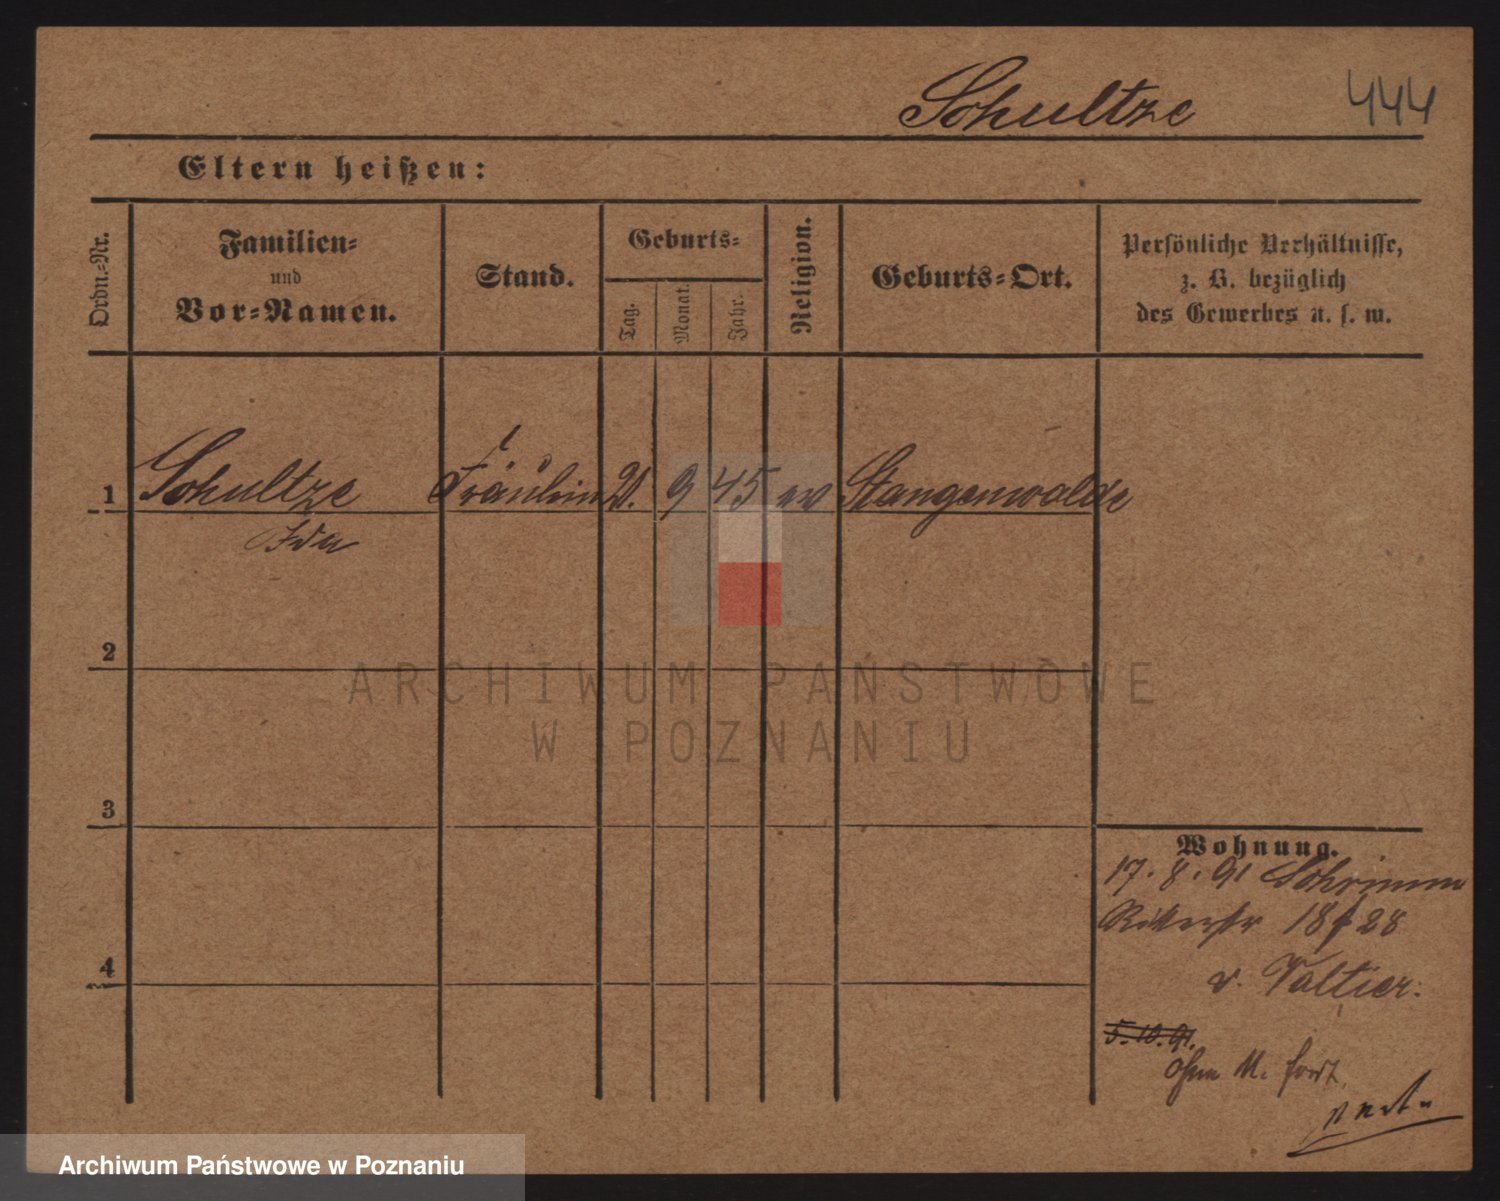 Schultze 444
Eltern heißen:
Ordn.-Nr.
Familien-
und
Vor-Namen.
Stand.
Geburts-
Tag.
Monat.
Jahr.
Religion.
Geburts-Ort.
Persönliche Verhältnisse,
z. B. bezüglich
des Gewerbes u. s. w.
1 Schultze Fräulein 21. 9 45 ev Stangenwalde
Ida
2
ARCHIWUM PAŃSTWOWE
W POZNANIU
3
Wohnung.
17. 8. 91 Schrimm
Ritterstr 18/28
4
v. Valtier.
5. 10. 91.
ohne M. fort.
Archiwum Państwowe w Poznaniu